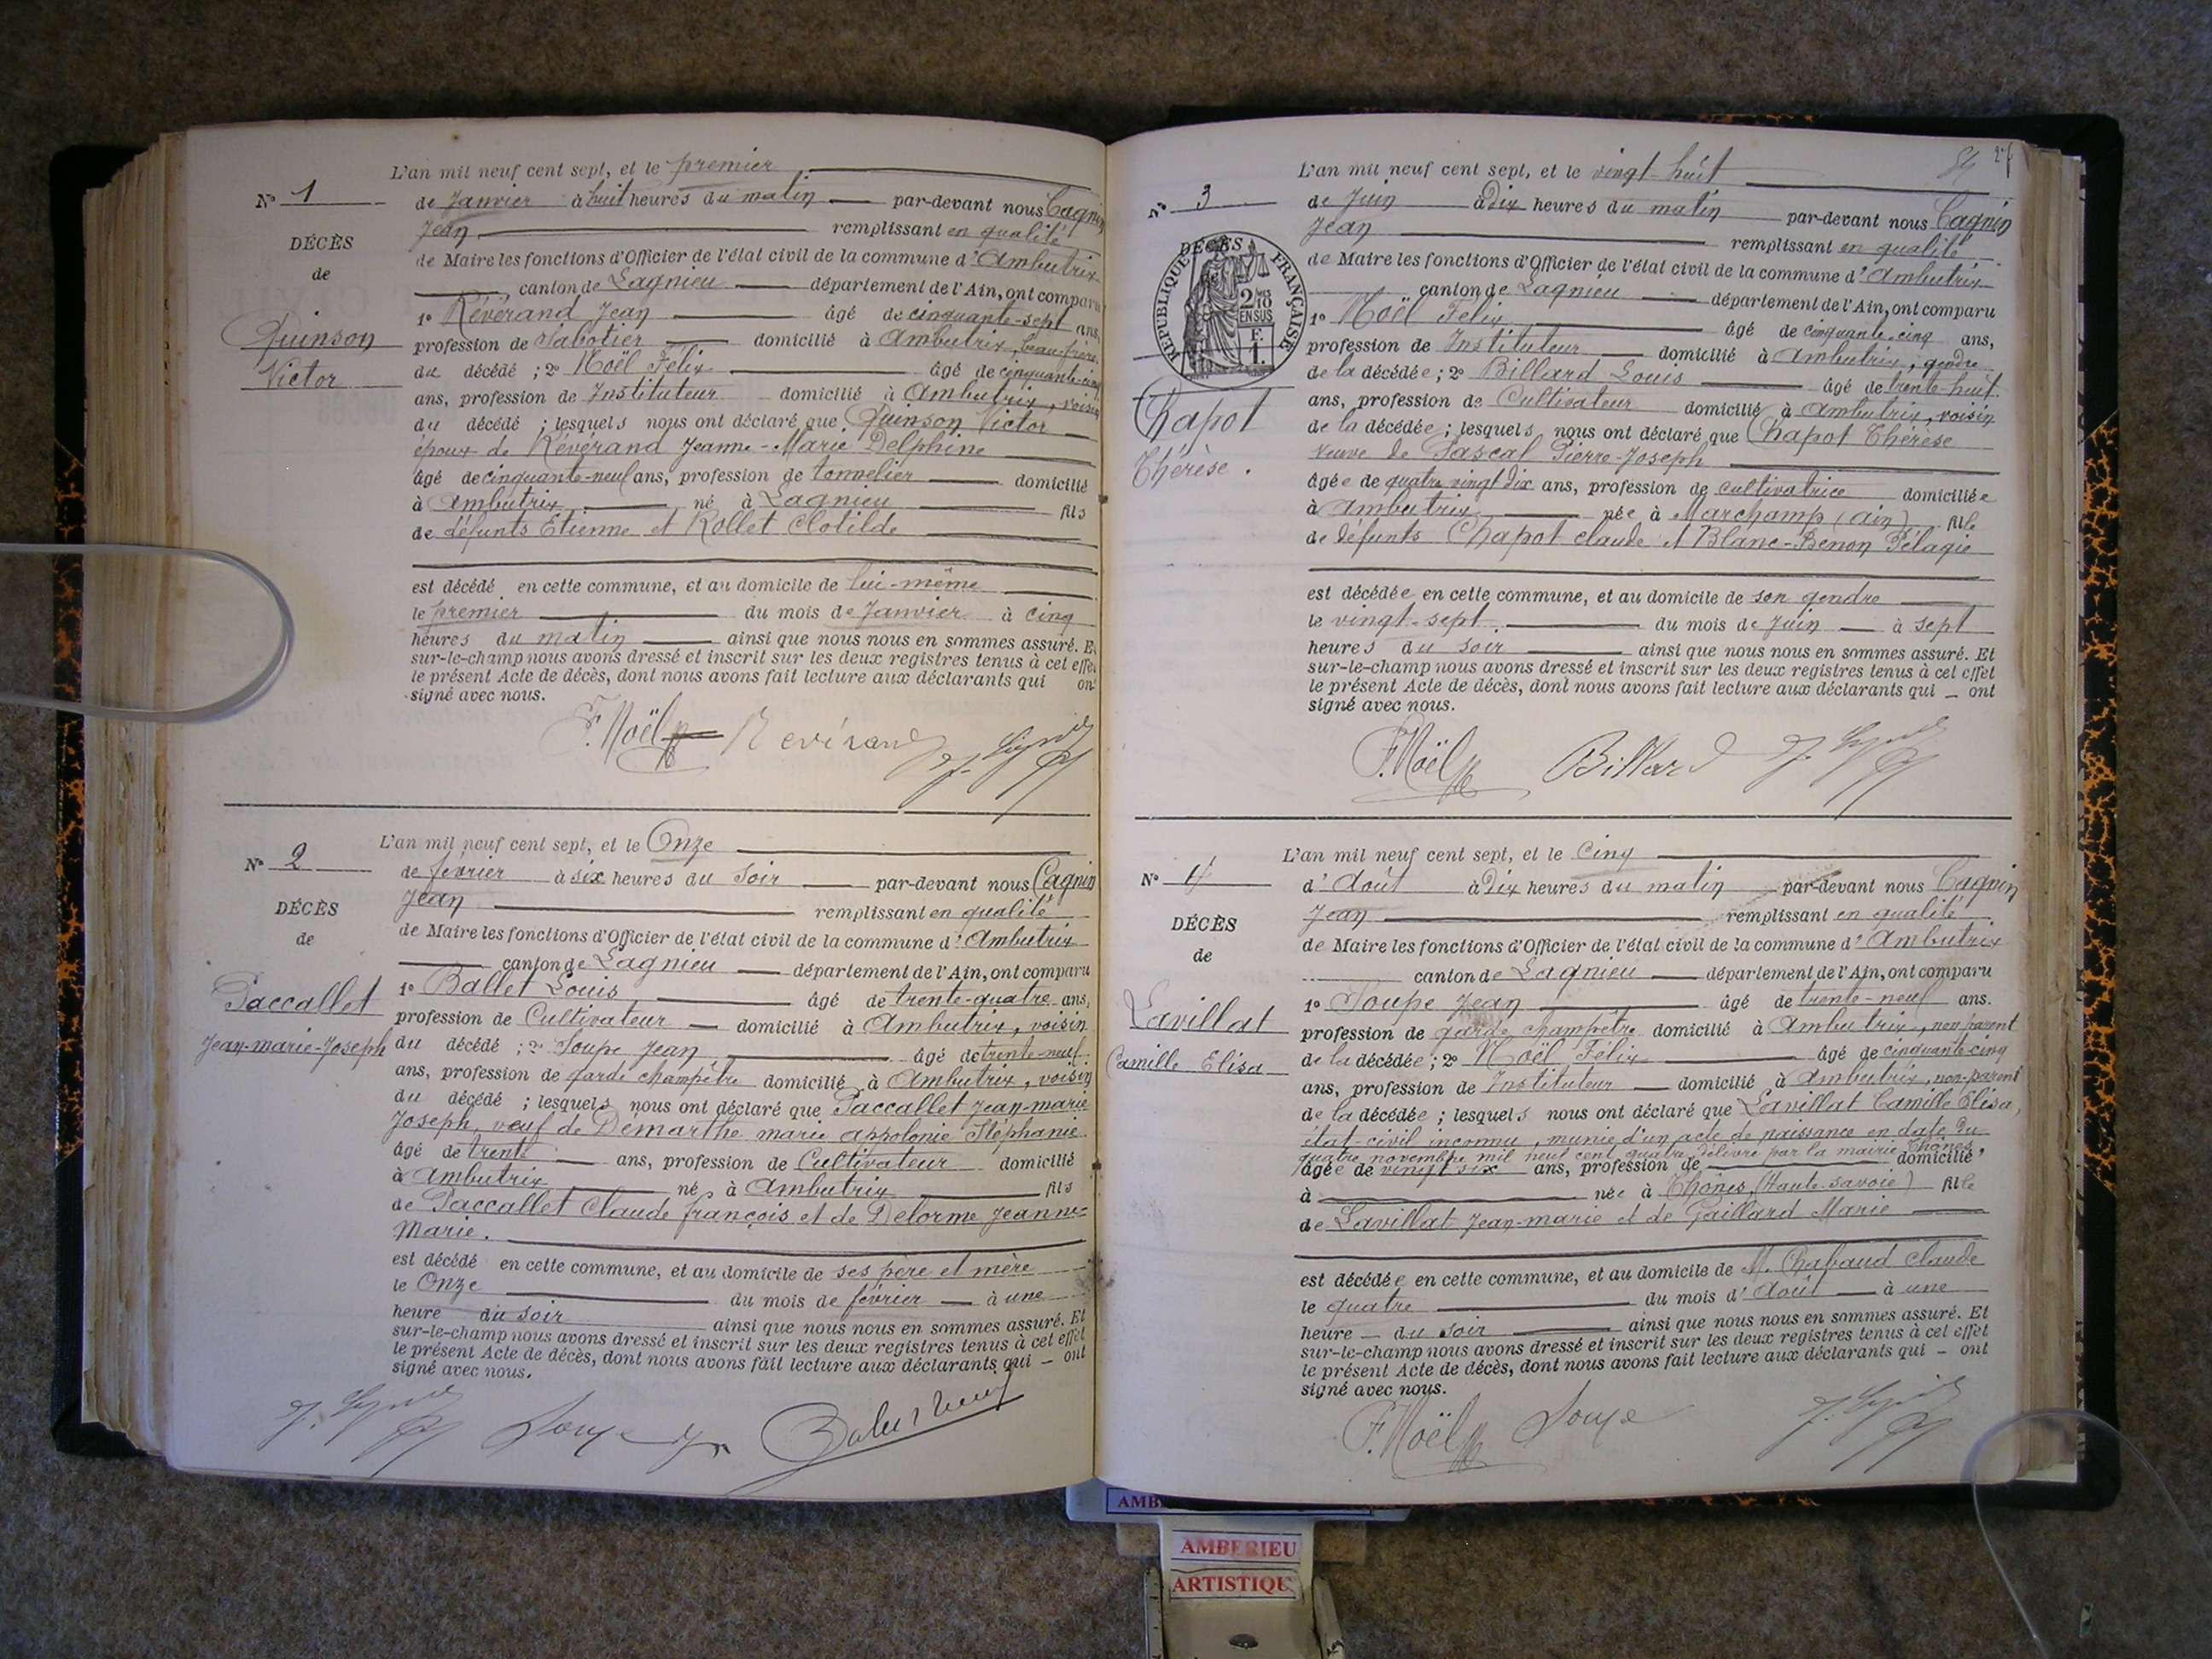 L'an mil neuf cent sept, et le premier
N° 1
de Janvier à huit heures du matin par-devant nous Cagnin
Jean remplissant en qualité
DÉCÈS
de Maire les fonctions d'Officier de l'état civil de la commune d'Ambutrix
de
canton de Lagnieu département de l'Ain, ont comparu
1° Révérand Jean âgé de cinquante-sept ans,
Quinson
profession de Sabotier domicilié à Ambutrix, beau-frère
Victor
du décédé ; 2° Noël Félix âgé de cinquante-cinq
ans, profession de Instituteur domicilié à Ambutrix, voisin
du décédé ; lesquels nous ont déclaré que Quinson Victor
époux de Révérand Jeanne-Marie Delphine
âgé de cinquante-neuf ans, profession de tonnelier domicilié
à Ambutrix né à Lagnieu fils
de défunts Etienne et Rollet Clotilde
est décédé en cette commune, et au domicile de lui-même
le premier du mois de Janvier à cinq
heures du matin ainsi que nous nous en sommes assuré. Et
sur-le-champ nous avons dressé et inscrit sur les deux registres tenus à cet effet
le présent Acte de décès, dont nous avons fait lecture aux déclarants qui ont
signé avec nous.
F. Noël Révérand
L'an mil neuf cent sept, et le Onze
N° 2
de février à six heures du soir par-devant nous Cagnin
Jean remplissant en qualité
DÉCÈS
de Maire les fonctions d'Officier de l'état civil de la commune d'Ambutrix
de
canton de Lagnieu département de l'Ain, ont comparu
1° Ballet Louis âgé de trente-quatre ans,
Paccallet
profession de Cultivateur domicilié à Ambutrix, voisin
Jean-marie-Joseph
du décédé ; 2° Soupe Jean âgé de trente-neuf
ans, profession de garde champêtre domicilié à Ambutrix, voisin
du décédé ; lesquels nous ont déclaré que Paccallet Jean-marie
Joseph, veuf de Demarthe marie appolonie Stéphanie
âgé de trente ans, profession de Cultivateur domicilié
à Ambutrix né à Ambutrix fils
de Paccallet Claude françois et de Delorme Jeanne-
Marie.
est décédé en cette commune, et au domicile de ses père et mère
le Onze du mois de février à une
heure du soir ainsi que nous nous en sommes assuré. Et
sur-le-champ nous avons dressé et inscrit sur les deux registres tenus à cet effet
le présent Acte de décès, dont nous avons fait lecture aux déclarants qui – ont
signé avec nous.
Soupe
L'an mil neuf cent sept, et le vingt-huit
N° 3
de Juin à Dix heures du matin par-devant nous Cagnin
Jean remplissant en qualité
DÉCÈS
RÉPUBLIQUE FRANÇAISE
de Maire les fonctions d'Officier de l'état civil de la commune d'Ambutrix
canton de Lagnieu département de l'Ain, ont comparu
1° Noël Félix âgé de cinquante-cinq ans,
profession de Instituteur domicilié à Ambutrix, gendre
de la décédée ; 2° Billard Louis âgé de trente-huit
Chapot
ans, profession de Cultivateur domicilié à Ambutrix, voisin
de la décédée ; lesquels nous ont déclaré que Chapot Thérèse
Thérèse.
veuve de Pascal Pierre-Joseph
âgée de quatre vingt dix ans, profession de cultivatrice domiciliée
à Ambutrix née à Marchamp (ain) fille
de défunts Chapot claude et Blanc-Benon Pélagie
est décédée en cette commune, et au domicile de son gendre
le vingt-sept du mois de Juin à sept
heures du soir ainsi que nous nous en sommes assuré. Et
sur-le-champ nous avons dressé et inscrit sur les deux registres tenus à cet effet
le présent Acte de décès, dont nous avons fait lecture aux déclarants qui – ont
signé avec nous.
F. Noël Billard
L'an mil neuf cent sept, et le cinq
N° 4
d'Août à Dix heures du matin par-devant nous Cagnin
Jean remplissant en qualité
DÉCÈS
de Maire les fonctions d'Officier de l'état civil de la commune d'Ambutrix
de
canton de Lagnieu département de l'Ain, ont comparu
1° Soupe Jean âgé de trente-neuf ans.
Lavillat
profession de garde champêtre domicilié à Ambutrix, non parent
Camille Elisa
de la décédée ; 2° Noël Félix âgé de cinquante-cinq
ans, profession de Instituteur domicilié à Ambutrix, non-parent
de la décédée ; lesquels nous ont déclaré que Lavillat Camille Elisa,
état-civil inconnu, munie d'un acte de naissance en date du
quatre novembre mil neuf cent quatre délivré par la mairie Thônes
âgée de vingt six ans, profession de domicilié
à née à Thônes (Haute-Savoie) fille
de Lavillat Jean-marie et de Gaillard Marie
est décédée en cette commune, et au domicile de M. Chabaud Claude
le quatre du mois d'Août à une
heure du soir ainsi que nous nous en sommes assuré. Et
sur-le-champ nous avons dressé et inscrit sur les deux registres tenus à cet effet
le présent Acte de décès, dont nous avons fait lecture aux déclarants qui – ont
signé avec nous.
F. Noël Soupe
AMBERIEU
ARTISTIQUE